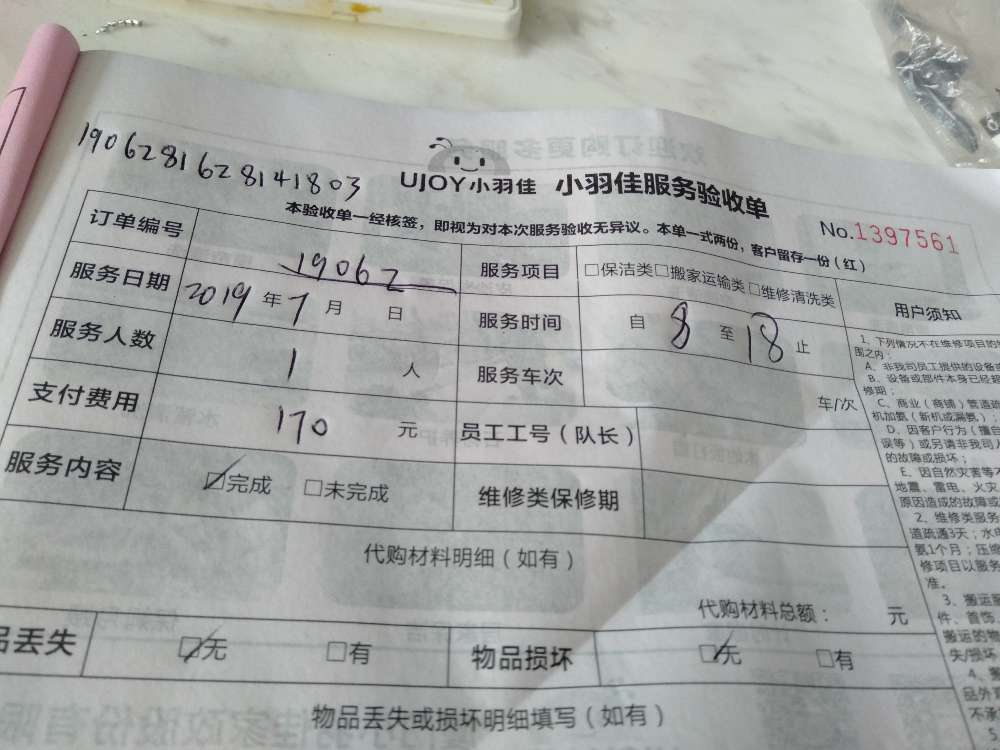 1906281628141803
UJOY小羽佳 小羽佳服务验收单
No.1397561
本验收单一经核签，即视为对本次服务验收无异议。本单一式两份，客户留存一份（红）
订单编号 19062 服务项目 □保洁类□搬家运输类□维修清洗类 用户须知
服务日期 2019年7月 日 服务时间 自8至18止
服务人数 1人 服务车次 车/次
支付费用 170元 员工工号（队长）
服务内容 ☑完成 □未完成 维修类保修期
代购材料明细（如有）
代购材料总额： 元
品丢失 ☑无 □有 物品损坏 ☑无 □有
物品丢失或损坏明细填写（如有）
1、下列情况不在维修项目的
围之内：
A、非我司员工提供的设备或
B、设备或部件本身已经超
修期；
C、商业（商铺）管道疏
机加氨（新机或漏氨）
D、因客户行为（擅自
误等）或另请非我司人
的故障或损坏；
E、因自然灾害等不
地震、雷电、火灾
原因造成的故障或
2、维修类服务
道疏通3天；水电
氨1个月；压缩
修项目以服务
准。
3、搬运
件、首饰
搬运的物
失/损坏
4、
品外
不承
5